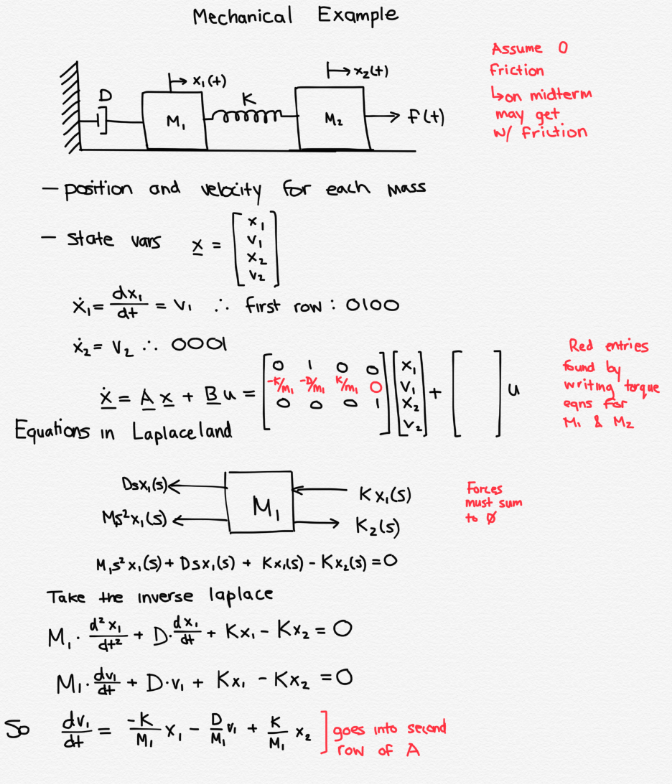 Mechanical Example
Assume 0
friction
↳on midterm
may get
w/ friction
D
x₁(t)
K
x₂(t)
M₁
M₂
f(t)
- position and velocity for each mass
- state vars x = [x₁ v₁ x₂ v₂]
ẋ₁ = dx₁/dt = v₁ ∴ first row : 0100
ẋ₂ = v₂ ∴ 0001
ẋ = A x + B u = [0 1 0 0; -K/M₁ -D/M₁ K/M₁ 0; 0 0 0 1] [x₁ v₁ x₂ v₂] + [ ] u
Red entries
found by
writing torque
eqns for
M₁ & M₂
Equations in Laplaceland
Dsx₁(s)
Ms²x₁(s)
M₁
Kx₁(s)
K₂(s)
Forces
must sum
to 0
M₁s²x₁(s) + Dsx₁(s) + Kx₁(s) - Kx₂(s) = 0
Take the inverse laplace
M₁ · d²x₁/dt² + D·dx₁/dt + Kx₁ - Kx₂ = 0
M₁ · dv₁/dt + D·v₁ + Kx₁ - Kx₂ = 0
So dv₁/dt = -K/M₁ x₁ - D/M₁ v₁ + K/M₁ x₂
goes into second
row of A